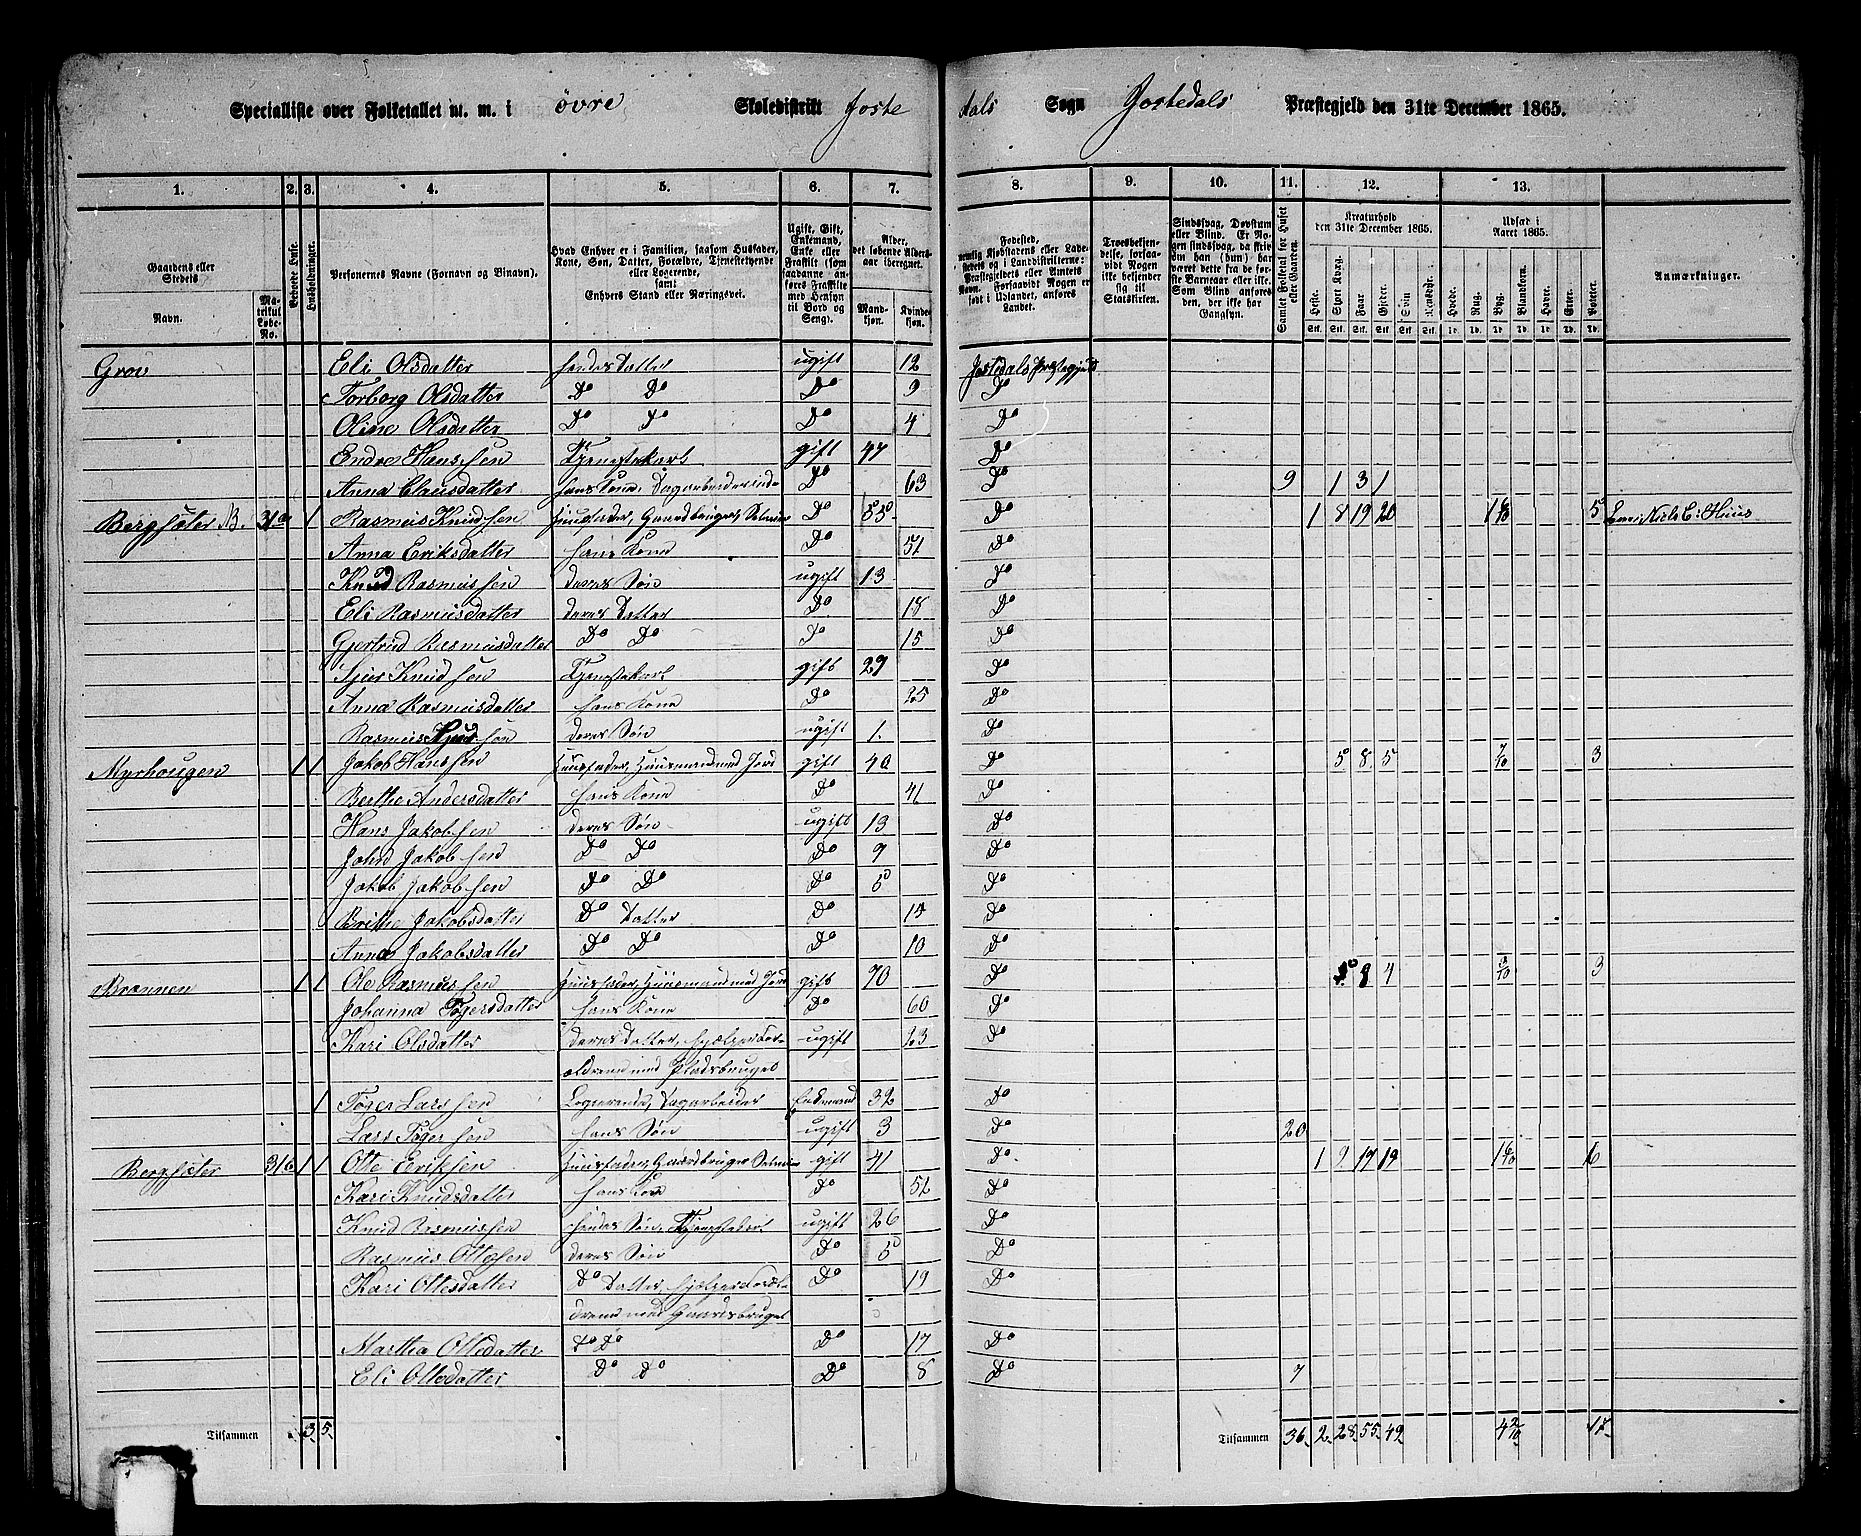 Specialliste over Folketallet m. m. i øvre Skoledistrikt Joste dals Sogn Jostedals Præstegjeld den 31te December 1865.
1. 2. 3. 4. 5. 6. 7. 8. 9. 10. 11. 12. 13.
Gaardens eller Stedets Navn. Matrikul Løbe-No. Beboede Huse. Husholdninger. Personernes Navne (Fornavn og Binavn). Hvad Enhver er i Familien, saasom Husfader, Kone, Søn, Datter, Forældre, Tjenestetyende eller Logerende, samt Enhvers Stand eller Næringsvei. Ugift, Gift, Enkemand, Enke eller Fraskilt Alder, det løbende Aldersaar iberegnet. Mandkjøn. Kvindekjøn. Fødested, Troesbekjendelse, forsaavidt Nogen ikke bekjender sig til Statskirken. Sindssvag, Døvstum eller Blind. Samlet Folketal for Huset eller Gaarden. Kreaturhold den 31te December 1865. Heste. Stort Kvæg. Faar. Gjeder. Svin. Rensdyr. Udsæd i Aaret 1865. Hvede. Rug. Byg. Blandkorn. Havre. Erter. Poteter. Anmærkninger.
Grov Eli Olsdatter hendes Datter ugift 12 Jostedals Præstegjeld
Torborg Olsdatter Do Do Do 9 Do
Oline Olsdatter Do Do Do 4 Do
Endre Hanssen Tjenestekarl gift 47 Do
Anna Clausdatter hans Kone, Dagarbeiderinde Do 63 Do 9 1 3 1
Bergsæter N. 31a 1 Rasmus Knudsen Huusfader, Gaardbruger, Selveier Do 55 Do 1 8 19 20 5
Anna Eriksdatter hans Kone Do 51 Do
Knud Rasmussen deres Søn ugift 13 Do
Eli Rasmusdatter deres Datter Do 18 Do
Gjertrud Rasmusdatter Do Do Do 15 Do
Sjur Knudsen Tjenestekarl gift 27 Do
Anna Rasmusdatter hans Kone Do 25 Do
Rasmus Sjursen deres Søn ugift 1. Do
Myrhougen 1 1 Jakob Hanssen Huusfader, Huusmand med Jord gift 40 Do 5 8 5 7/10 3
Berthe Andersdatter hans Kone Do 41 Do
Hans Jakobsen deres Søn ugift 13 Do
Johd Jakobsen Do Do Do 9 Do
Jakob Jakobsen Do Do Do 5 Do
Brithe Jakobsdatter Do Datter Do 15 Do
Anna Jakobsdatter Do Do Do 10 Do
Brænnen 1 1 Ole Rasmussen Huusfader, Huusmand med Jord gift 70 Do 8 4 3
Johanna Tøgersdatter hans Kone Do 60 Do
Kari Olsdatter deres Datter, hjælper For- ugift 23 Do
ældrene med Pladsbruget
1 Tøger Larssen Logerende, Dagarbeider Enkemand 32 Do
Lars Tøgersen hans Søn ugift 3 Do 20
Bergsæter 31b 1 1 Otte Eriksen Huusfader, Gaardbruger Selveier gift 41 Do. 1 9 17 19 6
Kari Knudsdatter hans Kone Do 52 Do
Knud Rasmussen hendes Søn, Tjenestekarl ugift 26 Do
Rasmus Ottesen deres Søn Do 5 Do
Kari Ottesdatter Do Datter, hjælper Foræl- Do 19 Do
drene med Gaardsbruget
Martha Ottedatter Do Do Do 17 Do
Eli Ottedatter Do Do Do 8 Do 7
Tilsammen 3 5. Tilsammen 36. 2. 28. 55. 49 4 2/10 17.